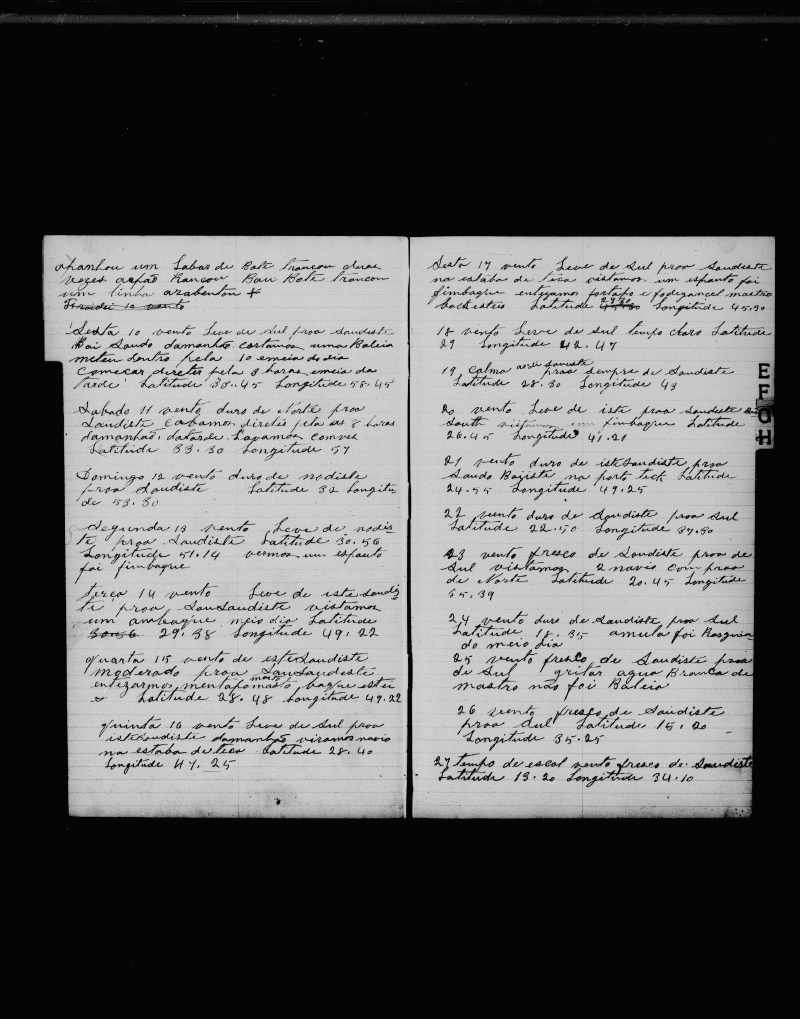 apanhou um Labar de Bote trancou duas
vezes arpão Rancou Bou Bote trancou
um linha arabentou +
10 vento
Sesta 10 vento Leve de Sul proa Saudiste
Boi Saudo damanhã cortamos uma Baleia
meteu dentro pela 10 emeia do dia
comecar diretes pela 3 horas emeia da
tarde Latitude 35.45 Longitude 58.45
Sabado 11 vento duro de Norte proa
Saudiste cabamos diretes pela as 8 horas
damanhão, datarde Lavamos comves
Latitude 33.30 Longitude 57
Domingo 12 vento duro de nodiste
proa Saudiste Latitude 32 Longitu
de 53.30
Segunda 13 vento Leve de nodis
te proa Saudiste Latitude 30.56
Longitude 51.14 vermos um espauto
foi fimbaque
terça 14 vento Leve de iste saudis
te proa, SauSaudiste vistamos
um ambaque meio dia Latitude
29.38 Longitude 49.22
quarta 15 vento de esteSaudiste
moderado proa SauSaudeste
mas
Latitude 28.48 Longitude 49.22
quinta 16 vento Leve de Sul proa
isteSaudiste damanhão viramos navio
na estaba de teca Latitude 28.40
Longitude 47.25
Sesta 17 vento Leve de Sul proa Saudiste
na estaba de teca vistamos um espauto foi
fimbaque entezamos fortapo e fodegancel mastro
29.30
Latitude Longitude 45.30
18 vento Leve de sul tempo claro Latitude
29 Longitude 42.47
19, calma proa sempre de Saudiste
Latitude 28.30 Longitude 43
20 vento Leve de iste proa Saudeste
South vistamos um fimbaque Latitude
26.45 Longitude 41.21
21 vento duro de isteSaudiste proa
Saudo Bajiste na port teck Latitude
24.55 Longitude 49.25
22 vento duro de Saudiste proa Sul
Latitude 22.50 Longitude 37.30
23 vento fresco de Saudiste proa de
Sul vistamos 2 navio com proa
de Norte Latitude 20.45 Longitude
35.39
24 vento duro de Saudiste, proa Sul
Latitude 18.35 amula foi
do meio dia
25 vento fresco de Saudiste proa
de Sul gritar agua Branca de
mastro não foi Baleia
26 vento fresco de Saudiste
proa Sul Latitude 15.20
Longitude 35.25
27 tempo de escol vento fresco de Saudiste
Latitude 13.20 Longitude 34.10
E
F
G
H